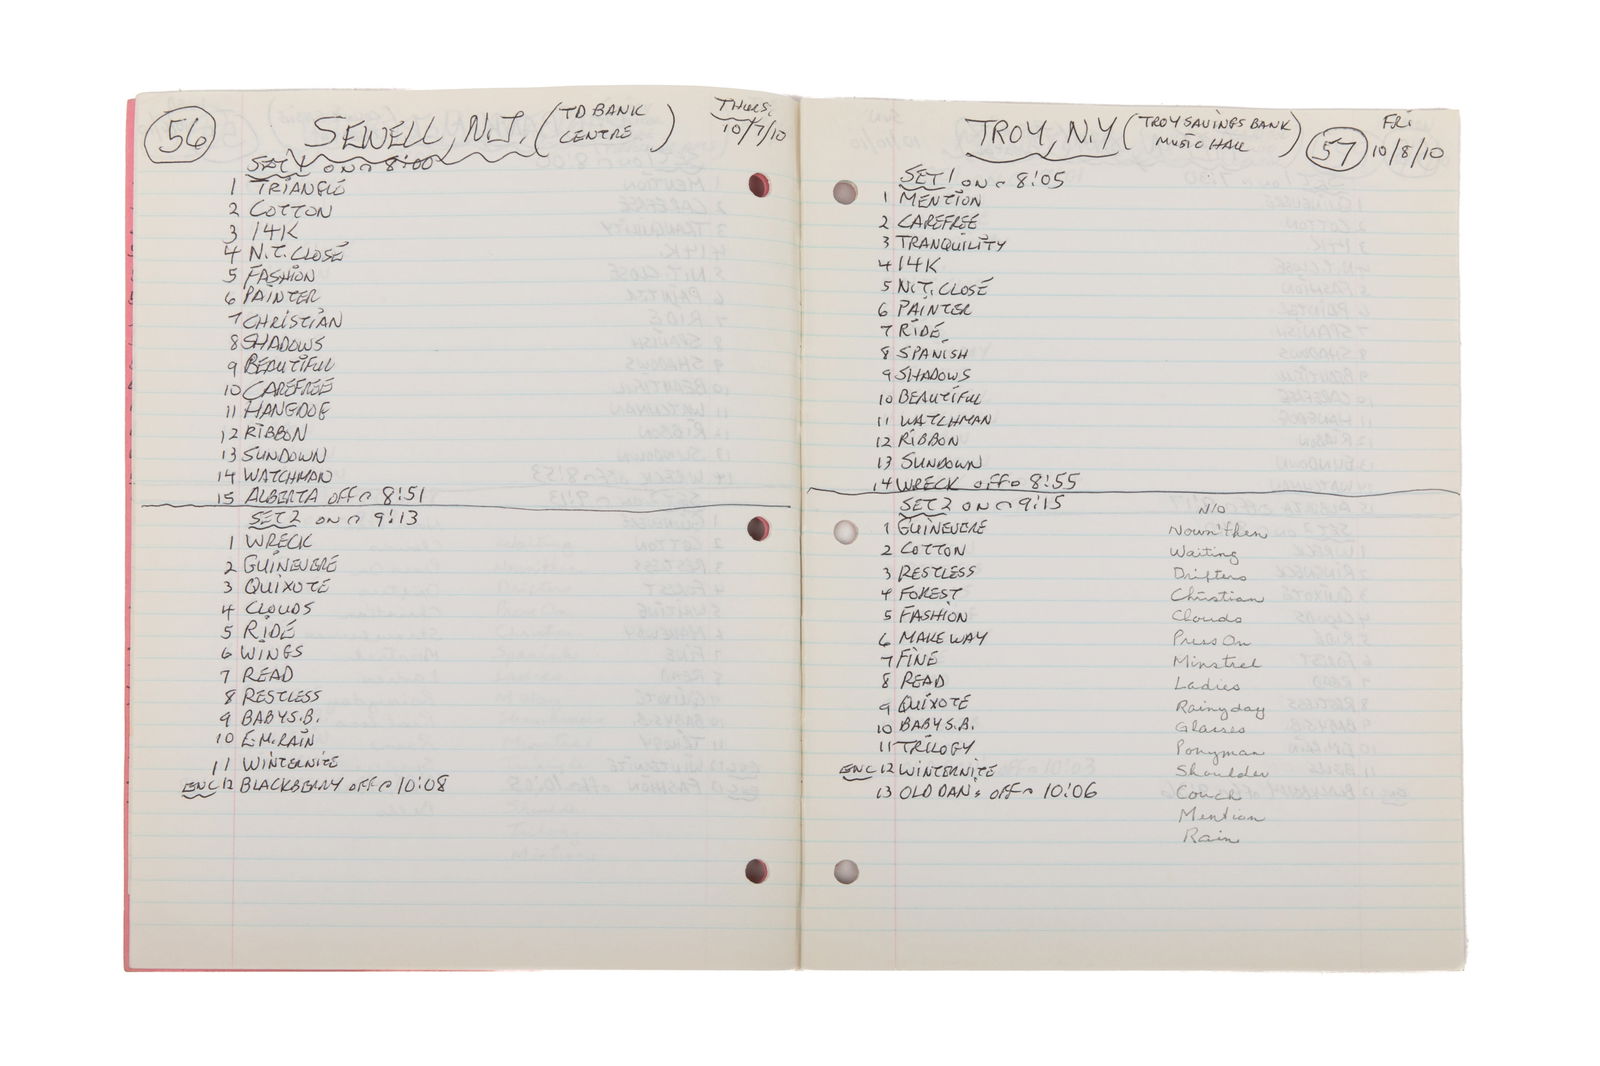 56 SEWELL, N.J. (TD BANK CENTRE) THURS. 10/7/10
SET 1 ON @ 8:00
1 TRIANGLE
2 COTTON
3 14K
4 N.T. CLOSE
5 FASHION
6 PAINTER
7 CHRISTIAN
8 SHADOWS
9 BEAUTIFUL
10 CAREFREE
11 HANGDOG
12 RIBBON
13 SUNDOWN
14 WATCHMAN
15 ALBERTA off @ 8:51
SET 2 ON @ 9:13
1 WRECK
2 GUINEVERE
3 QUIXOTE
4 CLOUDS
5 RIDE
6 WINGS
7 READ
8 RESTLESS
9 BABY S.B.
10 E.M. RAIN
11 WINTERNITE
ENC 12 BLACKBERRY off @ 10:08
TROY, N.Y (TROY SAVINGS BANK MUSIC HALL) 57 FRI 10/8/10
SET 1 ON @ 8:05
1 MENTION
2 CAREFREE
3 TRANQUILITY
4 14K
5 N.T. CLOSE
6 PAINTER
7 RIDE
8 SPANISH
9 SHADOWS
10 BEAUTIFUL
11 WATCHMAN
12 RIBBON
13 SUNDOWN
14 WRECK off @ 8:55
SET 2 ON @ 9:15
1 GUINEVERE
2 COTTON
3 RESTLESS
4 FOREST
5 FASHION
6 MAKE WAY
7 FINE
8 READ
9 QUIXOTE
10 BABY S.B.
11 TRILOGY
ENC 12 WINTERNITE
13 OLD DAN'S off @ 10:06
N/O
Now n' then
Waiting
Drifters
Christian
Clouds
Press On
Minstrel
Ladies
Rainyday
Glasses
Ponyman
Shoulder
Couch
Mention
Rain